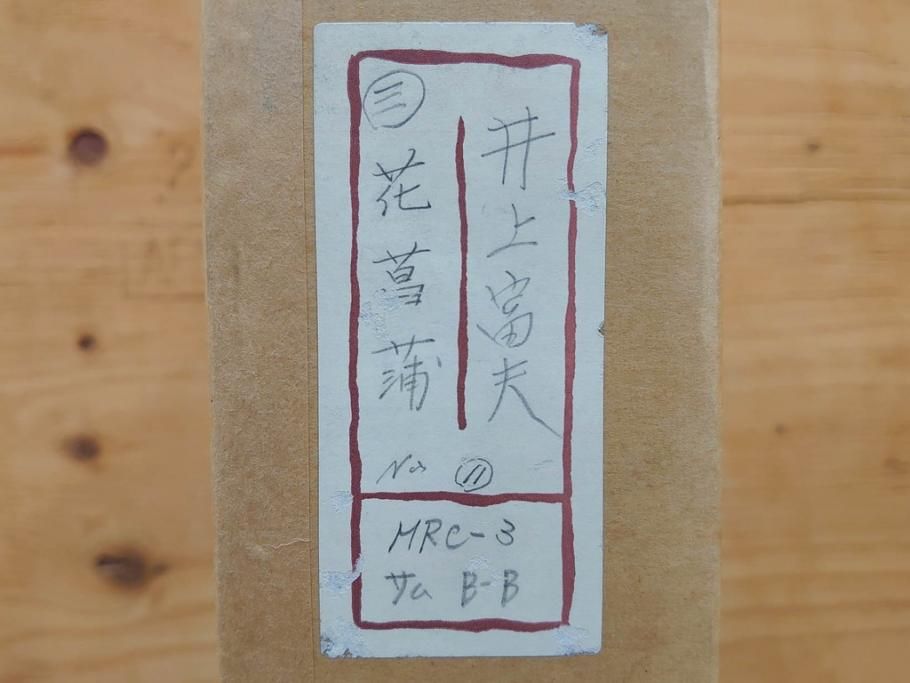 井上富夫
㊂花菖蒲
No ⑪
MRC-3
サa B-B